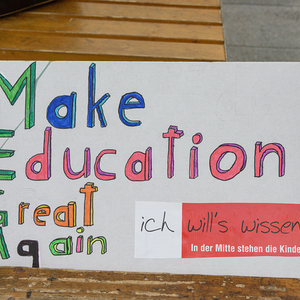 Make
Education
Great
Again
ich will's wissen
In der Mitte stehen die Kinde